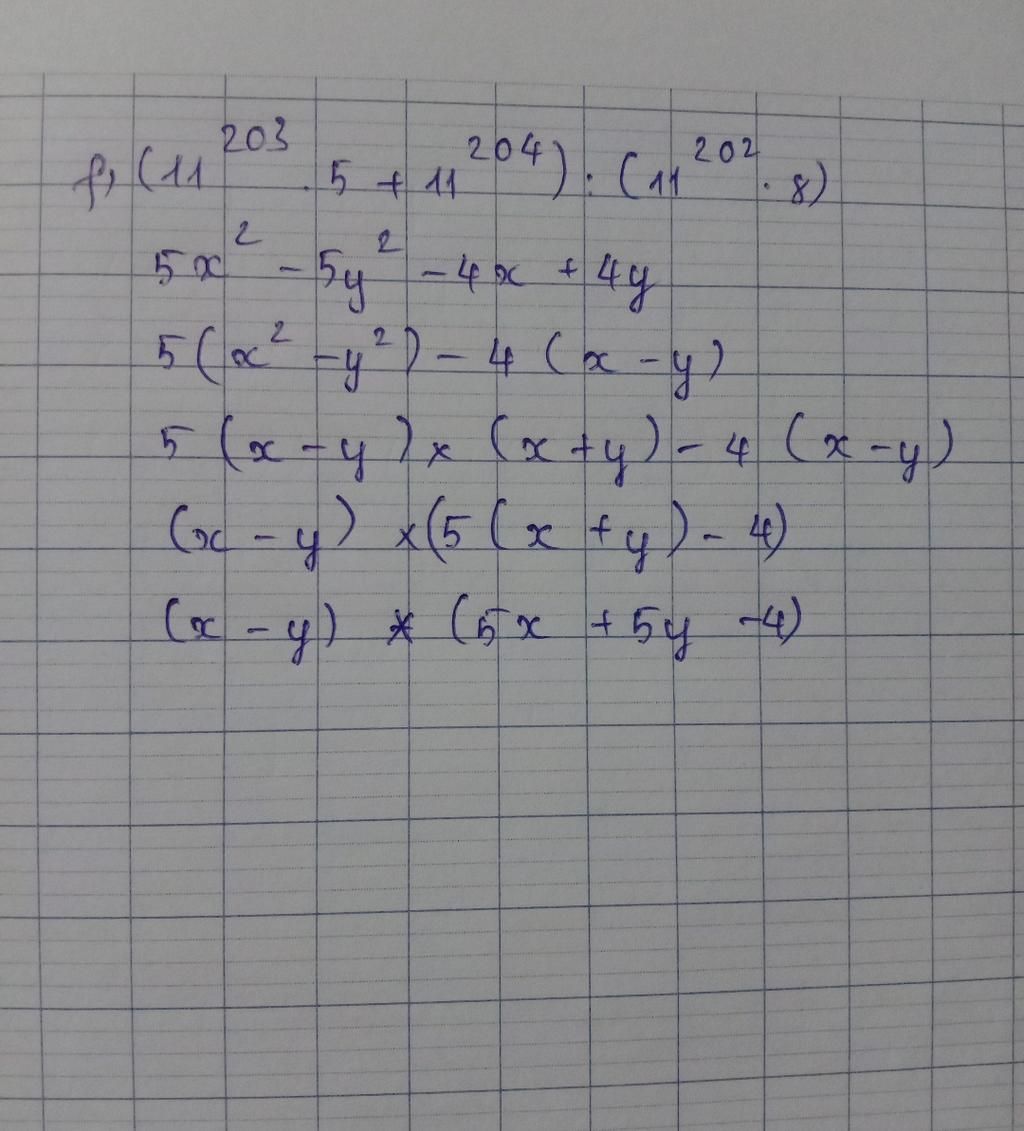 f, (11²⁰³ . 5 + 11²⁰⁴) : (11²⁰² . 8)
5x² - 5y² - 4x + 4y
5(x² - y²) - 4 (x - y)
5 (x - y) x (x + y) - 4 (x - y)
(x - y) x (5 (x + y) - 4)
(x - y) * (5x + 5y - 4)